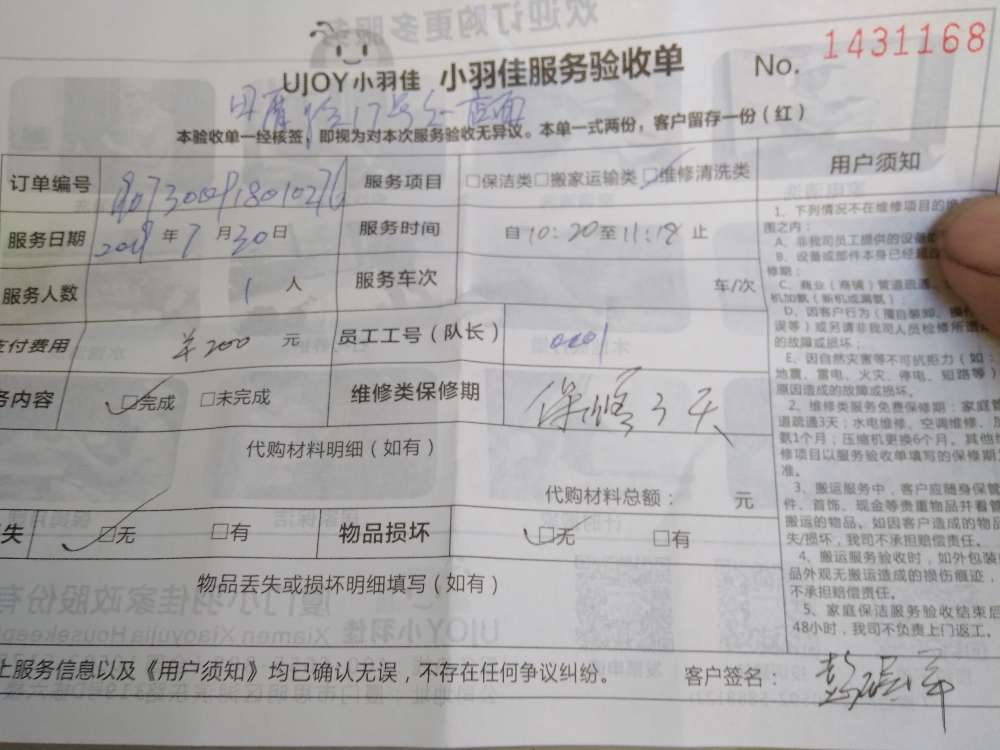 No. 1431168
UJOY小羽佳 小羽佳服务验收单
17号
本验收单一经核签，即视为对本次服务验收无异议。本单一式两份，客户留存一份（红）
订单编号
服务项目 □保洁类□搬家运输类☑维修清洗类
服务日期 年7月30日
服务时间 自10:20至11:18止
服务人数 1 人
服务车次 车/次
支付费用 羊200 元
员工工号（队长） 0001
务内容 ☑完成 □未完成
维修类保修期 保修3天
代购材料明细（如有）
代购材料总额： 元
失 ☑无 □有
物品损坏 ☑无 □有
物品丢失或损坏明细填写（如有）
上服务信息以及《用户须知》均已确认无误，不存在任何争议纠纷。
客户签名：
用户须知
1、下列情况不在维修项目的
围之内：
A、非我司员工提供的设备
B、设量或部件本身已经超
修期；
C、商业（商铺）管道疏通
机加氨（新机或漏氨）；
D、因客户行为（擅自装卸、操
误等）或另请非我司人员检修所
的故障或损坏；
E、因自然灾害等不可抗拒力（如：
地震、雷电、火灾、停电、短路等）
原因造成的故障或损坏。
2、维修类服务免费保修期：家庭管
道疏通3天；水电维修、空调维修、加
氨1个月；压缩机更换6个月。其他维
修项目以服务验收单填写的保修期为
准。
3、搬运服务中，客户应随身保管
件、首饰、现金等贵重物品并看管
搬运的物品。如因客户造成的物品
失/损坏，我司不承担赔偿责任。
4、搬运服务验收时，如外包装
品外观无搬运造成的损伤痕迹，
不承担赔偿责任。
5、家庭保洁服务验收结束后
48小时，我司不负责上门返工。